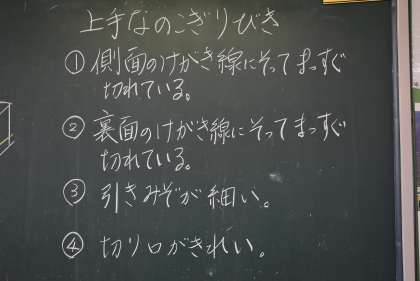 上手なのこぎりびき
①側面のけがき線にそってまっすぐ
切れている。
②裏面のけがき線にそってまっすぐ
切れている。
③引きみぞが細い。
④切り口がきれい。